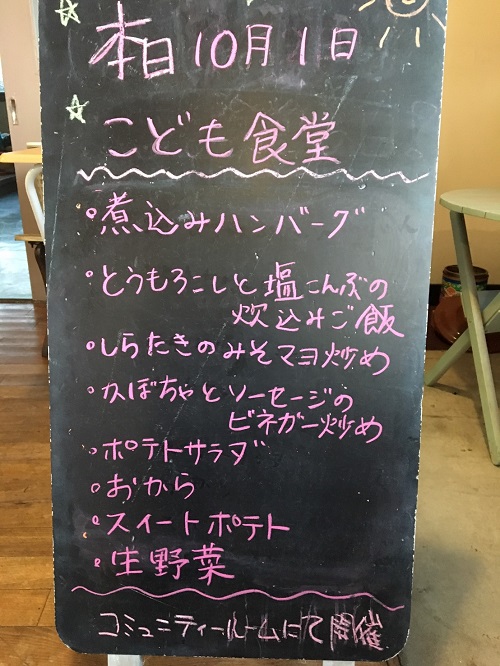 本日10月1日
こども食堂
◦煮込みハンバーグ
◦とうもろこしと塩こんぶの
炊込みご飯
◦しらたきのみそマヨ炒め
◦かぼちゃとソーセージの
ビネガー炒め
◦ポテトサラダ
◦おから
◦スイートポテト
◦生野菜
コミュニティールームにて開催